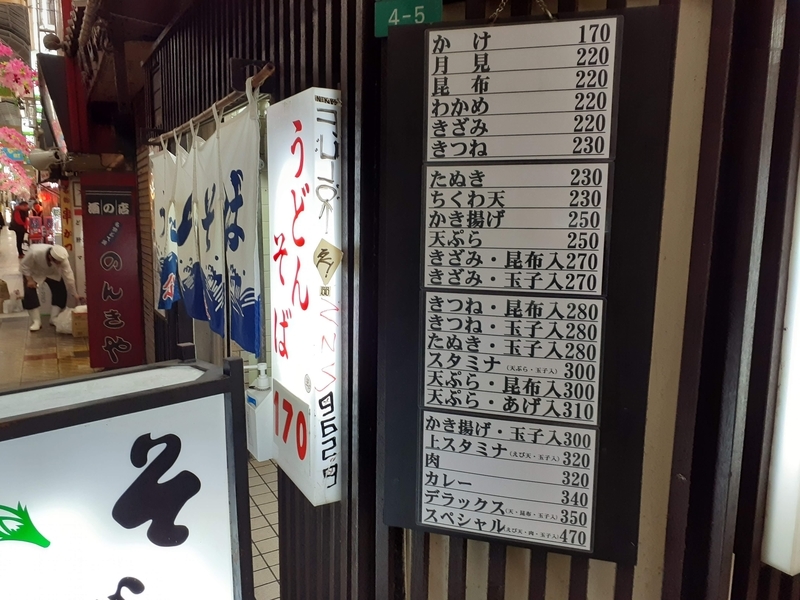 4-5
かけ 170
月見 220
昆布 220
わかめ 220
きざみ 220
きつね 230
たぬき 230
ちくわ天 230
かき揚げ 250
天ぷら 250
きざみ・昆布入 270
きざみ・玉子入 270
きつね・昆布入 280
きつね・玉子入 280
たぬき・玉子入 280
スタミナ(天ぷら・玉子入) 300
天ぷら・昆布入 300
天ぷら・あげ入 310
かき揚げ・玉子入 300
上スタミナ(えび天・玉子入) 320
肉 320
カレー 340
デラックス(天・昆布・玉子入) 350
スペシャル(えび天・肉・玉子入) 470
うどん
そば
170
そば
酒の店
のんきや
そ